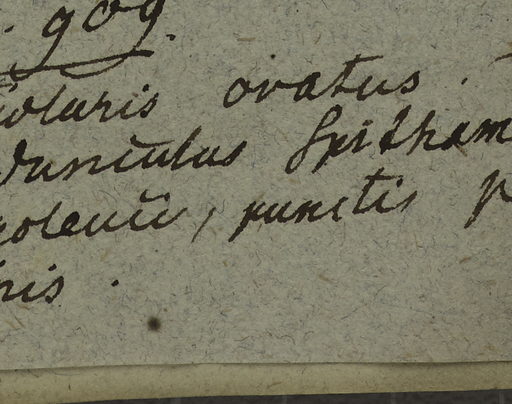 . 909.
iolaris ovatus . -
dunculus Spitham
oleucii, punctis p
ris .